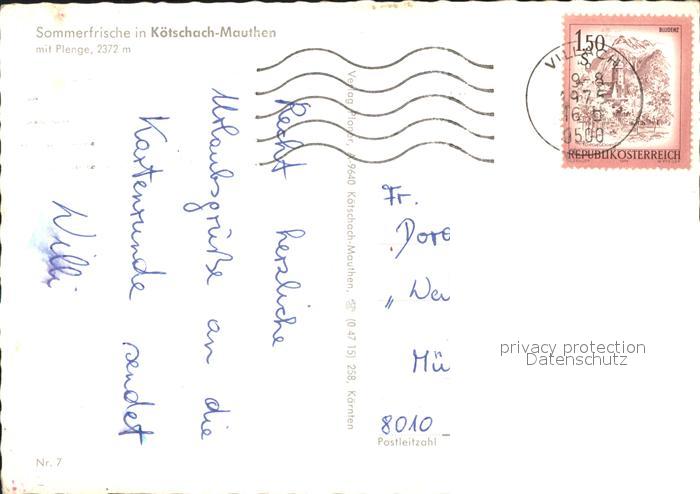 Sommerfrische in Kötschach-Mauthen
mit Plenge, 2372 m
Recht herzliche
Urlaubsgrüße an die
Kartenrunde sendet
Willi
Nr. 7
9640 Kötschach-Mauthen, ☏ (0 47 15) 258, Kärnten
1.50
S
BLUDENZ
REPUBLIK ÖSTERREICH
VILLACH
9-8
1975
9500
Fr.
Dore
„ We
Mü
8010
Postleitzahl
privacy protection
Datenschutz